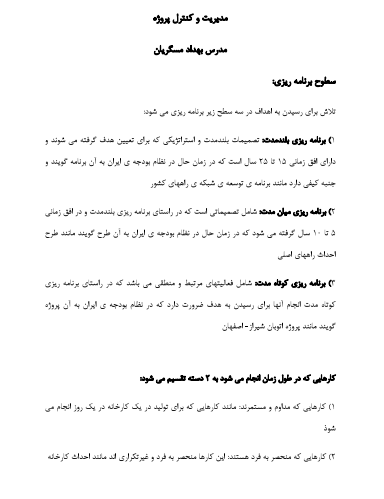 مدیریت و کنترل پروژه
مدرس بهداد مسگریان
سطوح برنامه ریزی:
تلاش برای رسیدن به اهداف در سه سطح زیر برنامه ریزی می شود:
۱) برنامه ریزی بلندمدت: تصمیمات بلندمدت و استراتژیکی که برای تعیین هدف گرفته می شوند و
دارای افق زمانی ۱۵ تا ۲۵ سال است که در زمان حال در نظام بودجه ی ایران به آن برنامه گویند و
جنبه کیفی دارد مانند برنامه ی توسعه ی شبکه ی راههای کشور
۲) برنامه ریزی میان مدت: شامل تصمیماتی است که در راستای برنامه ریزی بلندمدت و در افق زمانی
۵ تا ۱۰ سال گرفته می شود که در زمان حال در نظام بودجه ی ایران به آن طرح گویند مانند طرح
احداث راههای اصلی
۳) برنامه ریزی کوتاه مدت: شامل فعالیتهای مرتبط و منطقی می باشد که در راستای برنامه ریزی
کوتاه مدت انجام آنها برای رسیدن به هدف ضرورت دارد که در نظام بودجه ی ایران به آن پروژه
گویند مانند پروژه اتوبان شیراز- اصفهان
کارهایی که در طول زمان انجام می شود به ۲ دسته تقسیم می شود:
۱) کارهایی که مداوم و مستمرند: مانند کارهایی که برای تولید در یک کارخانه در یک روز انجام می
شوذ
۲) کارهایی که منحصر به فرد هستند: این کارها منحصر به فرد و غیرتکراری اند مانند احداث کارخانه